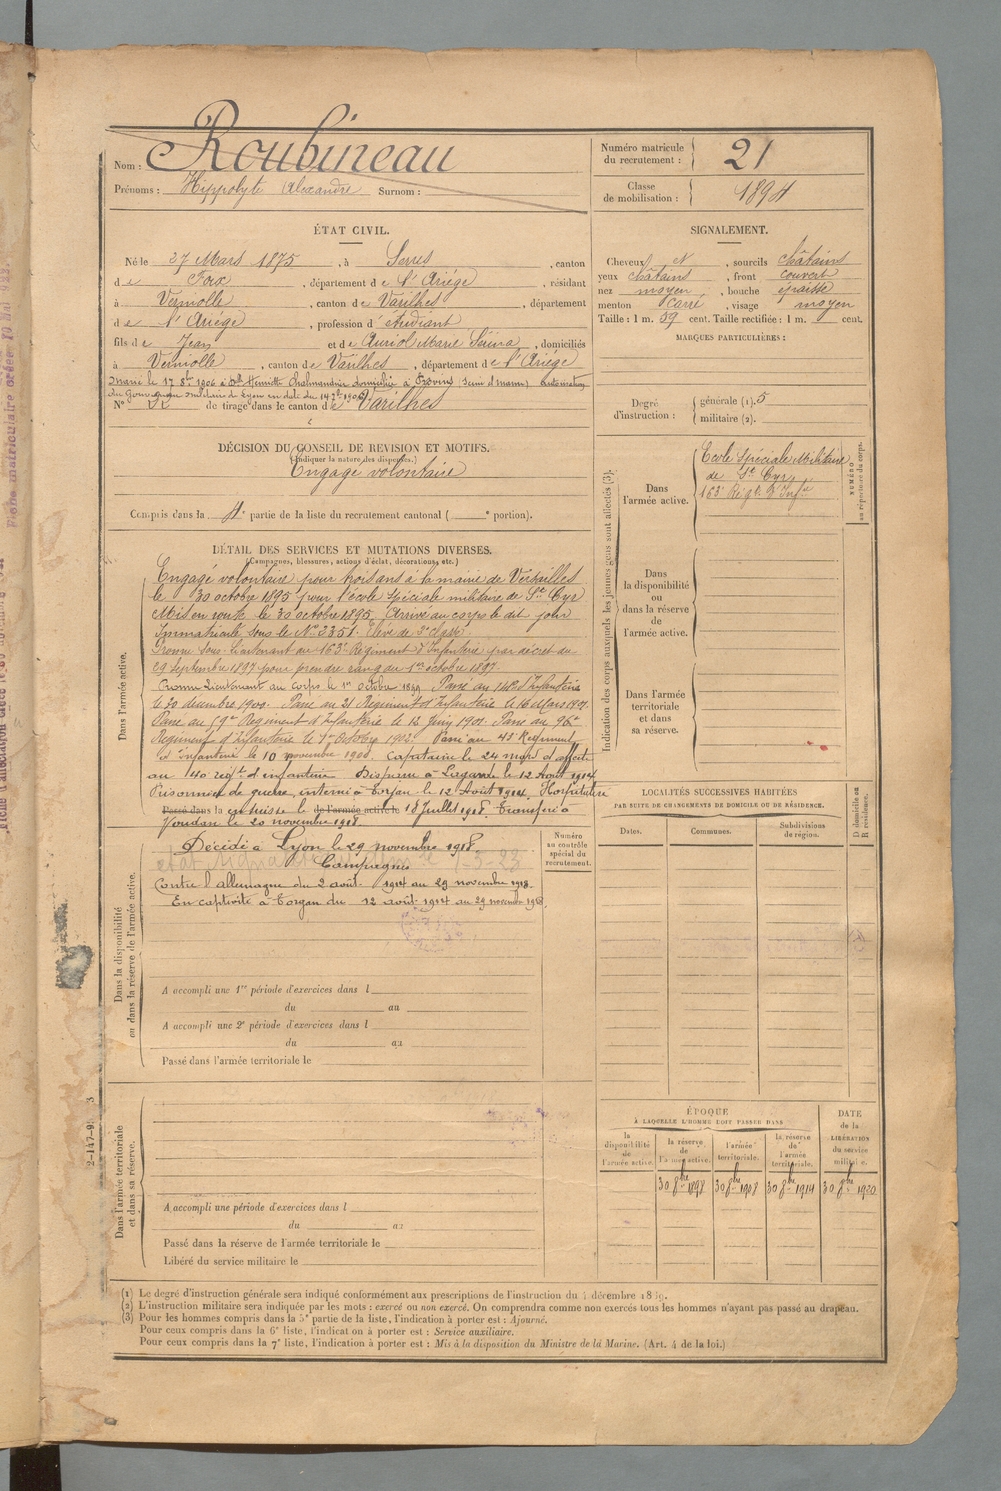 Nom : Roubineau
Prénoms : Hippolyte Alexandre Surnom :
Numéro matricule du recrutement : 21
Classe de mobilisation : 1894
ÉTAT CIVIL.
Né le 27 Mars 1875, à Serres, canton
de Foix, département de l'Ariége, résidant
à Verniolle, canton de Varilhes, département
de l'Ariége, profession d'étudiant
fils de Jean et de Auriol Marie, domiciliés
à Verniolle, canton de Varilhes, département de l'Ariége
Marié le 17 8bre 1906 à Dlle Henriette Chalmandrier domiciliée à Provins (Seine et Marne) autorisation
du Gouverneur militaire de Lyon en date du 14 7bre 1906
N° de tirage dans le canton de Varilhes
DÉCISION DU CONSEIL DE REVISION ET MOTIFS.
(Indiquer la nature des dispenses.)
Engagé volontaire
Compris dans la 4e partie de la liste du recrutement cantonal ( e portion).
SIGNALEMENT.
Cheveux et, sourcils châtains
yeux châtains, front couvert
nez moyen, bouche épaisse
menton carré, visage moyen
Taille : 1 m. 59 cent. Taille rectifiée : 1 m. cent.
MARQUES PARTICULIÈRES :
Degré d'instruction : générale (1). 5
militaire (2).
DÉTAIL DES SERVICES ET MUTATIONS DIVERSES.
(Campagnes, blessures, actions d'éclat, décorations, etc.)
Dans l'armée active.
Engagé volontaire pour trois ans à la mairie de Versailles
le 30 octobre 1895 pour l'école spéciale militaire de St Cyr
Mis en route le 30 octobre 1895. Arrivé au corps le dit jour
Immatriculé sous le No 3351. Elève de 2e classe
Promu Sous-Lieutenant au 163e Régiment d'Infanterie par décret du
29 septembre 1897 pour prendre rang du 1er octobre 1897.
Promu Lieutenant au corps le 1er octobre 1899. Passé au 148e d'Infanterie
le 30 décembre 1900. Passé au 21 Régiment d'Infanterie le 16 Mars 1901.
Passé au Régiment d'Infanterie le 12 Juin 1901. Passé au 96e
Régiment d'Infanterie le 1er Octobre 1902. Passé au 43e Régiment
d'Infanterie le 10 novembre 1908. Capitaine le 24 affecté
au 140 régt d'infanterie. Disparu à Lagarde le 12 Août 1914
Prisonnier de guerre, interné à Torgau le 12 Août 1914. Hospitalisé
Passé dans la en Suisse le de l'armée active le 18 Juillet 1918. Transféré à
le 20 novembre 1918.
Dans la disponibilité ou dans la réserve de l'armée active.
Décédé à Lyon le 29 novembre 1918
Campagnes
Contre l'Allemagne du 2 août 1914 au 29 novembre 1918.
En captivité à Torgau du 12 août 1914 au 29 novembre 1918.
A accompli une 1re période d'exercices dans l
du au
A accompli une 2e période d'exercices dans l
du au
Passé dans l'armée territoriale le
Numéro au contrôle spécial du recrutement.
Dans l'armée territoriale et dans sa réserve.
A accompli une période d'exercices dans l
du au
Passé dans la réserve de l'armée territoriale le
Libéré du service militaire le
Indication des corps auxquels les jeunes gens sont affectés (3).
Dans l'armée active.
Ecole Spéciale Militaire
de St Cyr
163e Régt d'Infie
NUMÉRO au répertoire du corps.
Dans la disponibilité ou dans la réserve de l'armée active.
Dans l'armée territoriale et dans sa réserve.
LOCALITÉS SUCCESSIVES HABITÉES
PAR SUITE DE CHANGEMENTS DE DOMICILE OU DE RÉSIDENCE.
Dates. Communes. Subdivisions de région. D domicile ou R résidence.
ÉPOQUE
À LAQUELLE L'HOMME DOIT PASSER DANS
la disponibilité de l'armée active. la réserve de l'armée active. l'armée territoriale. la réserve de l'armée territoriale. DATE de la LIBÉRATION du service militaire.
30 8bre 1898 30 8bre 1908 30 8bre 1914 30 8bre 1920
(1) Le degré d'instruction générale sera indiqué conformément aux prescriptions de l'instruction du 4 décembre 1889.
(2) L'instruction militaire sera indiquée par les mots : exercé ou non exercé. On comprendra comme non exercés tous les hommes n'ayant pas passé au drapeau.
(3) Pour les hommes compris dans la 5e partie de la liste, l'indication à porter est : Ajourné.
Pour ceux compris dans la 6e liste, l'indication à porter est : Service auxiliaire.
Pour ceux compris dans la 7e liste, l'indication à porter est : Mis à la disposition du Ministre de la Marine. (Art. 4 de la loi.)